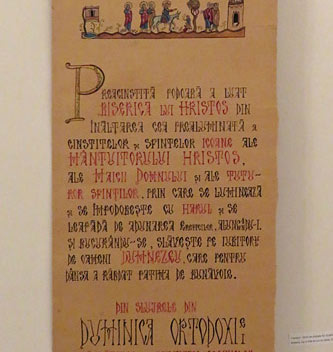 Preacinstită podoabă a luat
Biserica lui Hristos din
înălțarea cea prealuminată a
cinstitelor și sfintelor icoane ale
Mântuitorului Hristos,
ale Maicii Domnului și ale tutu-
ror sfinților, prin care se luminează
și se împodobește cu harul și se
leapădă de adunarea ereticilor, alungându-i.
și bucurându-se, slăvește pe iubitorul
de oameni Dumnezeu, care pentru
dânsa a răbdat patima de bunăvoie.
din slujbele din
Duminica Ortodoxiei